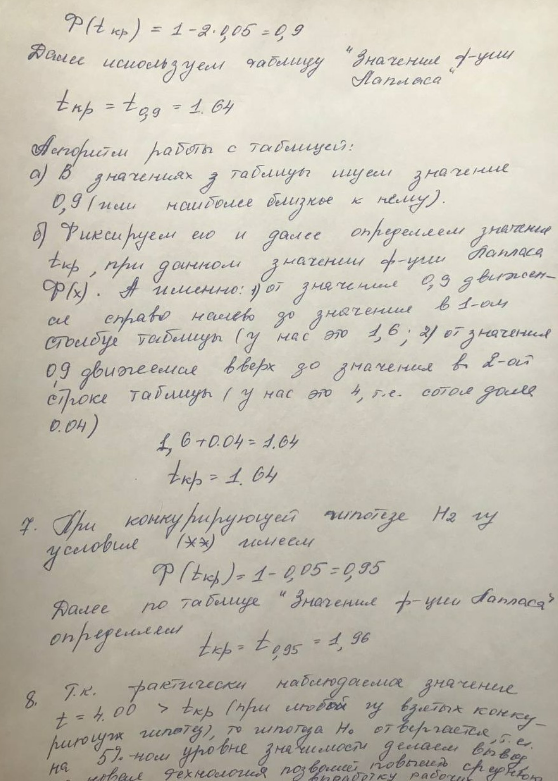 Ф(tкр) = 1-2·0,05=0,9
Далее используем таблицу "Значения ф-ции
Лапласа"
tкр = t0,9 = 1.64
Алгоритм работы с таблицей:
а) В значениях з таблицы ищем значение
0,9 (или наиболее близкое к нему).
б) Фиксируем его и далее определяем значение
tкр, при данном значении ф-ции Лапласа
Ф(х). А именно: 1) от значения 0,9 движем-
ся справо налево до значение в 1-ом
столбце таблицы (у нас это 1,6; 2) от значения
0,9 движемся вверх до значения в 2-ой
строке таблицы (у нас это 4, т.е. сотая доля
0.04)
1,6+0.04=1.64
tкр = 1.64
7. При конкурирующей гипотезе H2 из
условие (**) имеем
Ф(tкр) = 1-0,05=0,95
Далее по таблице "Значения ф-ции Лапласа"
определяем
tкр = t0,95 = 1,96
8. Т.к. фактически наблюдаемое значение
t = 4.00 > tкр (при любой из взятых конку-
рирующих гипотез), то гипотеза H0 отвергается, т.е.
на 5%-ном уровне значимости делаем вывод
новая технология позволяет повысить среднюю
обработку рабочих